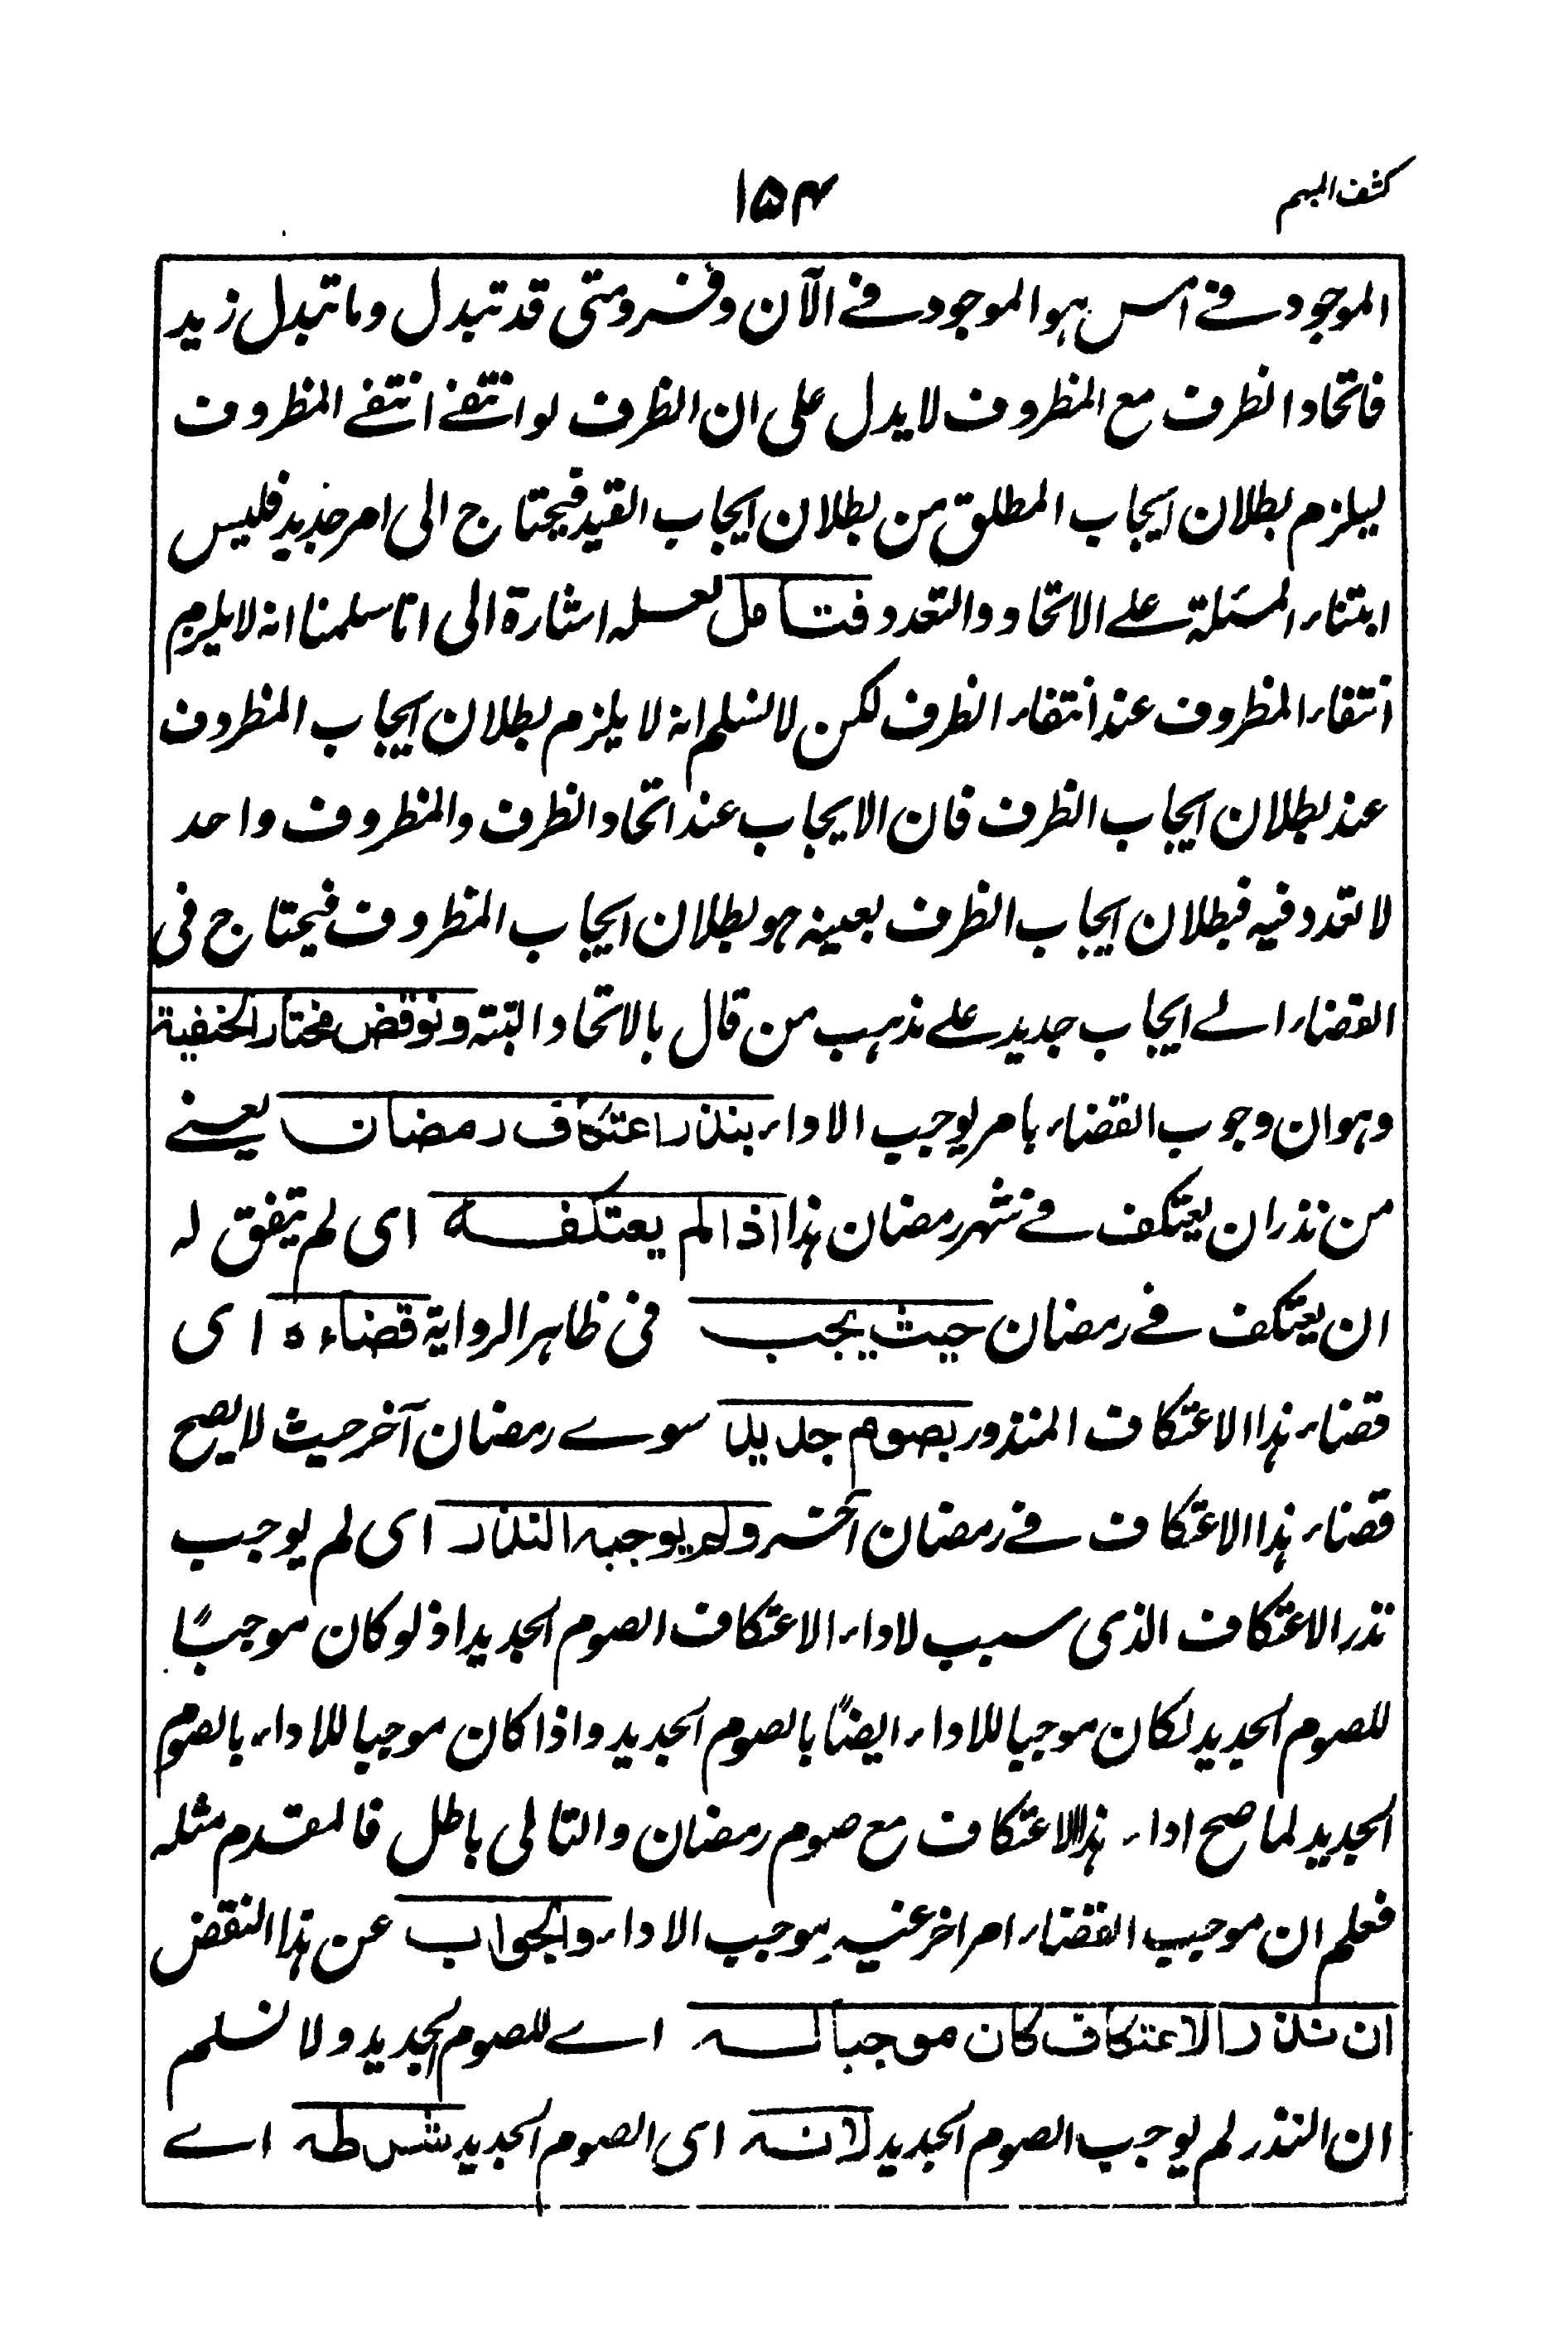 كشف المبهم
١٥٤
الموجود في امس هو الموجود في الآن وفردمتى قد تبدل وما تبدل زيد
فاتحاد الظرف مع المظروف لا يدل على ان الظرف لو انتفى انتفى المظروف
ليلزم بطلان ايجاب المطلق من بطلان ايجاب القيد فيحتاج الى امر جديد فليس
ابتناء المسئلة على الاتحاد والتعدد فتامل لعله اشارة الى انا سلمنا انه لا يلزم
انتفاء المظروف عند انتفاء الظرف لكن لا نسلم انه لا يلزم بطلان ايجاب المظروف
عند بطلان ايجاب الظرف فان الايجاب عند اتحاد الظرف والمظروف واحد
لا تعدد فيه فبطلان ايجاب الظرف بعينه هو بطلان ايجاب المظروف فيحتاج فى
القضاء الى ايجاب جديد على مذهب من قال بالاتحاد البتة ونوقض مختار الحنفية
وهو ان وجوب القضاء بامر يوجب الاداء بنذر اعتكاف رمضان يعني
من نذر ان يعتكف في شهر رمضان هذا اذا لم يعتكفه اى لم يتفق له
ان يعتكف في رمضان حيث يجب فى ظاهر الرواية قضاءه اى
قضاء هذا الاعتكاف المنذور بصوم جديد سوى رمضان آخر حيث لا يصح
قضاء هذا الاعتكاف في رمضان آخر ولم يوجبه النذر اى لم يوجب
نذر الاعتكاف الذى سبب لاداء الاعتكاف الصوم الجديد اذ لو كان موجبًا
للصوم الجديد لكان موجبا للاداء ايضًا بالصوم الجديد واذا كان موجبا للاداء بالصوم
الجديد لما صح اداء هذا الاعتكاف مع صوم رمضان والتالى باطل فالمقدم مثله
فعلم ان موجب القضاء امر اخر غير موجب الاداء والجواب عن هذا النقض
ان نذر الاعتكاف كان موجبا له اى للصوم الجديد ولا نسلم
ان النذر لم يوجب الصوم الجديد لانه اى الصوم الجديد شرطه اى